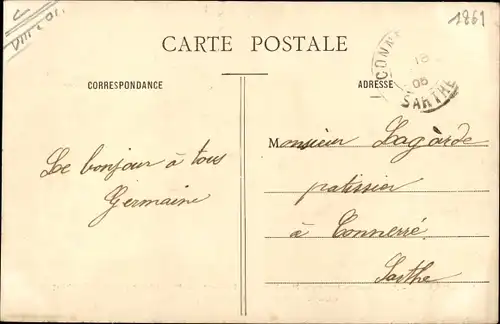 1861
CARTE POSTALE
CORRESPONDANCE
ADRESSE
CONN
18
05
SARTHE
Le bonjour à tous
Germaine
Monsieur Lagarde
patissier
à Connerré
Sarthe